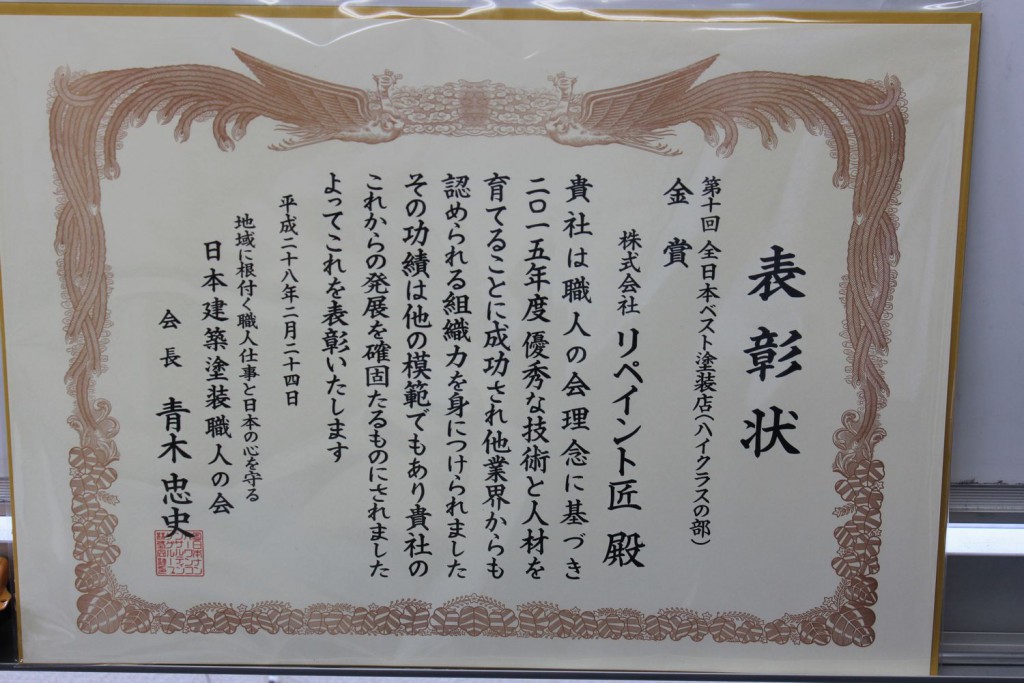 表彰状
第十回 全日本ベスト塗装店(ハイクラスの部)
金賞
株式会社 リペイント匠 殿
貴社は職人の会理念に基づき
二〇一五年度優秀な技術と人材を
育てることに成功され他業界からも
認められる組織力を身につけられました
その功績は他の模範でもあり貴社の
これからの発展を確固たるものにされました
よってこれを表彰いたします
平成二十八年二月二十四日
地域に根付く職人仕事と日本の心を守る
日本建築塗装職人の会
会長 青木忠史